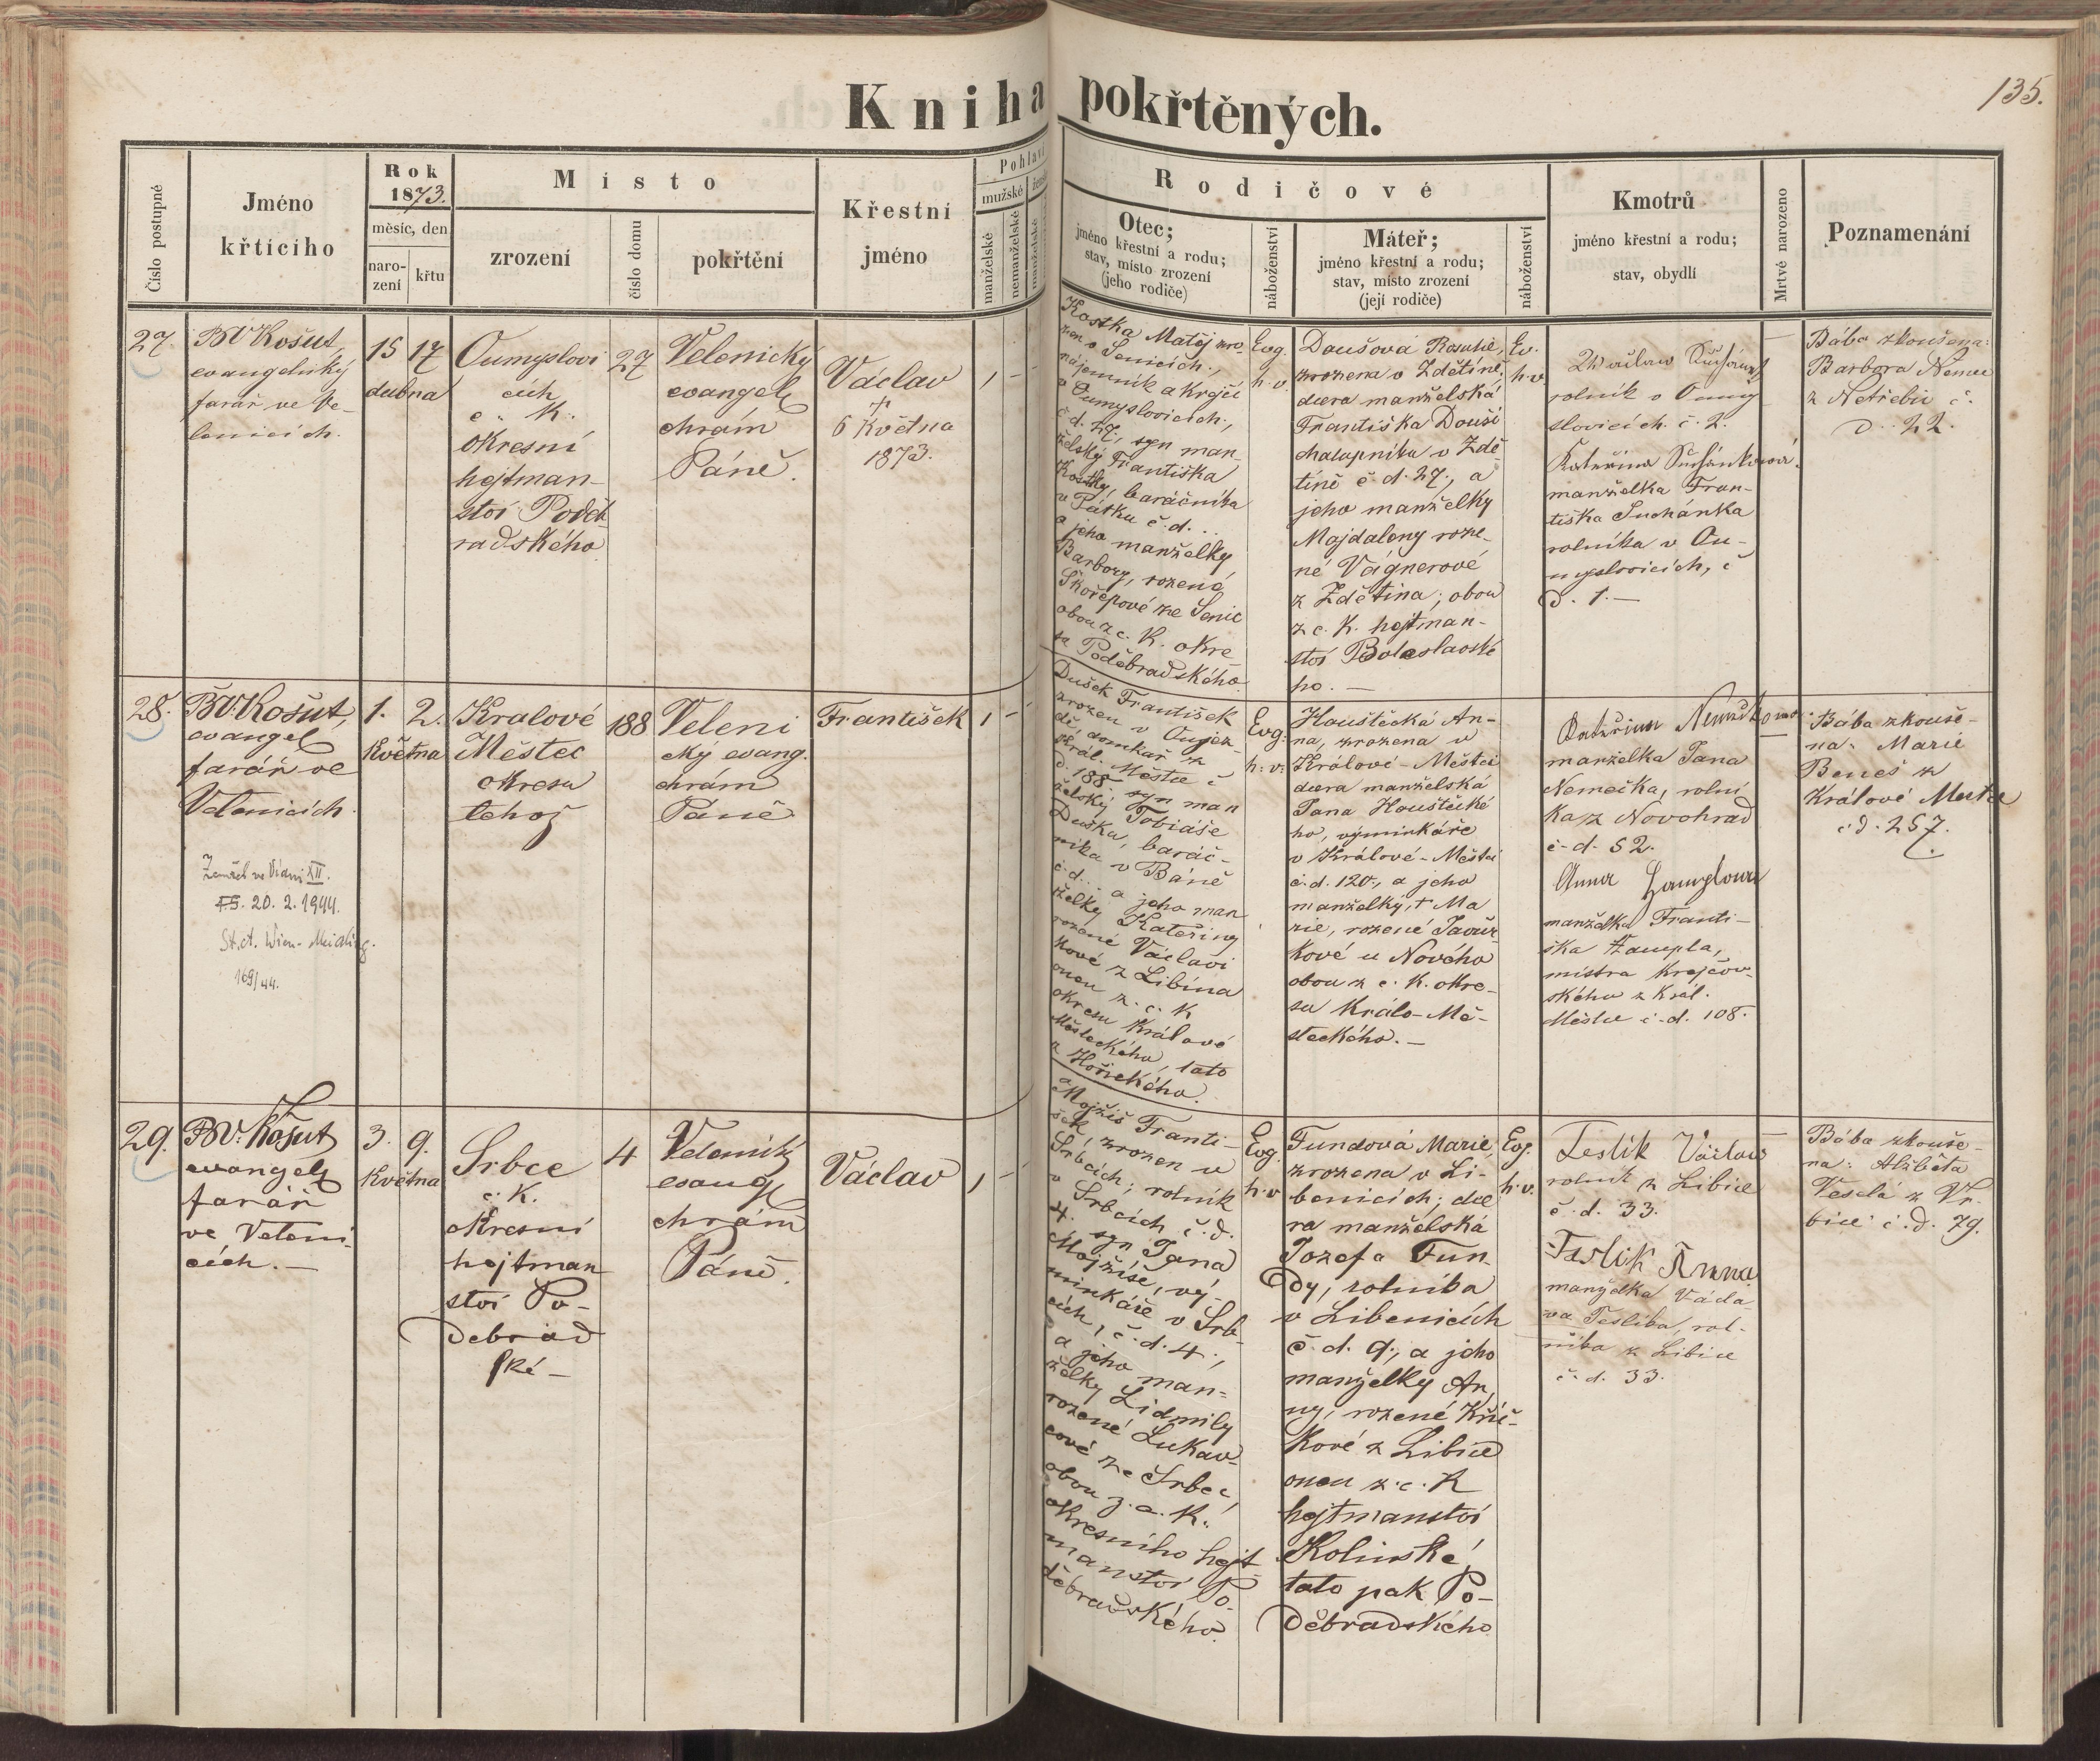 135.
Kniha pokřtěných.
Číslo postupné
Jméno
křtícího
Rok
1873.
měsíc, den
naro-
zení
křtu
Místo
zrození
číslo domu
pokřtění
Křestní
jméno
Pohlaví
mužské
manželské
nemanželské
manželské
Rodičové
Otec;
jméno křestní a rodu;
stav, místo zrození
(jeho rodiče)
náboženství
Máteř;
jméno křestní a rodu;
stav, místo zrození
(její rodiče)
náboženství
Kmotrů
jméno křestní a rodu;
stav, obydlí
Mrtvě narozeno
Poznamenání
27.
BV Košut,
evangelický
farář ve Ve-
lenicích.
15 17
dubna
Oumyslovi
cích
c. K.
okresní
hejtman-
ství Poděb
radského
27
Velenický
evangel
chrám
Páně.
Václav
+
6 Května
1873.
1 - -
Kostka Matěj zro-
zen v Senicích,
nájemník a Krejčí
v Oumyslovicích,
č. d. 27, syn man-
želský Františka
Kostky, baráčníka
v Pátku č. d. ..
a jeho manželky
Barbory, rozené
Skořepové ze Senic
obou z c. K. okre-
sa Poděbradského.
Evg.
h. v.
Doušová Rosalie,
zrozena v Zdětíně,
dcera manželská
Františka Douši
chalupníka v Zdě-
tíně č. d. 27., a
jeho manželky
Majdaleny roze-
né Vágnerové
z Zdětína; obou
z c. K. hejtman-
ství Boleslavské
ho. —
Ev.
h. v.
rolník v Oumy
slovicích. č. 2.
Kateřina Suchánková.
manželka Fran-
tiška Suchánka
rolníka v Ou-
myslovicích, č
d. 1. —
Bába zkoušena:
Barbora Němec
z Netřebic č.
d. 22.
28.
BV. Košut,
evangel
farář ve
Velenicích.
Zemřel ve Vídni XII.
20. 2. 1944.
St. A. Wien-Meidling.
169/44.
1. 2.
Května
Kralové
Městec
okresu
tehož
188
Veleni
cký evang.
chrám
Páně
František
1 - -
Dušek František
zrozen v Oujez-
dě domkář z
Král. Městce č
d. 188. syn man
želský Tobiáše
Duška, baráč-
níka v Báně
č. d. .. a jeho man
želky Kateřiny
rozené Václavi
kové z Libína
onen z. c. K
okresu Králové
Městeckého, tato
z Hořického.
Evg.
h. v.
Houštěcká An-
na, zrozena v
Králové-Městci
dcera manželská
Jana Houštěcké
ho, výminkáře
v Králové-Městci
č. d. 120., a jeho
manželky, + Ma
rie, rozené Javůr
kové u Nového
obou z c. K. okre-
su Králo-Mě-
steckého. —
manželka Jana
Nemečka, rolní
ka z Novohrad
č. d. 52.
manželka Franti-
ška Zampla,
mistra krejčov-
ského z Král.
Městce č. d. 108.
Bába zkouše-
na: Marie
Beneš z
Králové Městce
č. d. 257.
29.
BV. Košut
evangel
farář
ve Veleni
cích. —
3. 9.
Května
Srbce
c. K.
okresní
hejtman
ství Po-
debrad
ské —
4
Velenický
evang
chrám
Páně.
Václav
1 - -
Mojžíš Franti-
šek zrozen v
Srbcích; rolník
v Srbcích č. d.
4. syn Jana
Mojžíše, vý-
minkáře v Srb-
cích, č. d. 4.,
a jeho man-
želky Lidmily
rozené Lukav-
cové ze Srbec,
obou z. c. K.
okresního hejt
manství Po-
děbradského.
Evg.
h. v
Fundová Marie,
zrozena v Li-
benicích; dce
ra manželská
Jozefa Fun-
dy, rolníka
v Libenicích
č. d. 9., a jeho
manželky An,
ny, rozené Kříč-
kové z Libice
onen z. c. K
hejtmanství
Kolínské,
tato pak Po-
děbradského
Evg.
h. v.
Teslík Václav
rolník z Libice
č. d. 33.
Teslík Anna
manželka Václa
va Teslíka, rol-
níka z Libice
č. d. 33.
Bába zkouše-
na: Alžběta
Veselá z Vr-
bice č. d. 79.